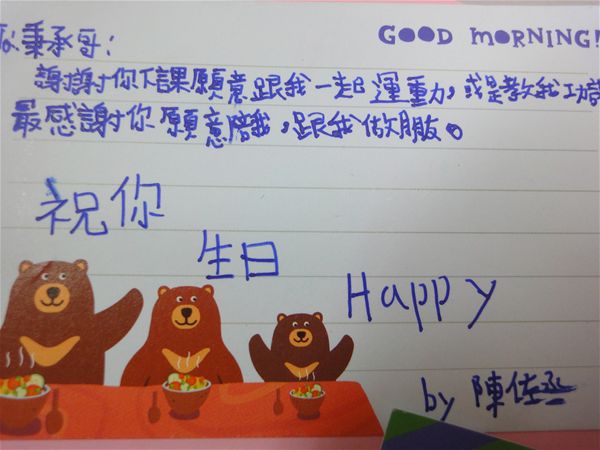 GOOD MORNING!
秉承哥:
謝謝你下課願意跟我一起運動,或是教我功
最感謝你願意陪我,跟我做朋友。
祝你
生日
Happy
by 陳佐丞